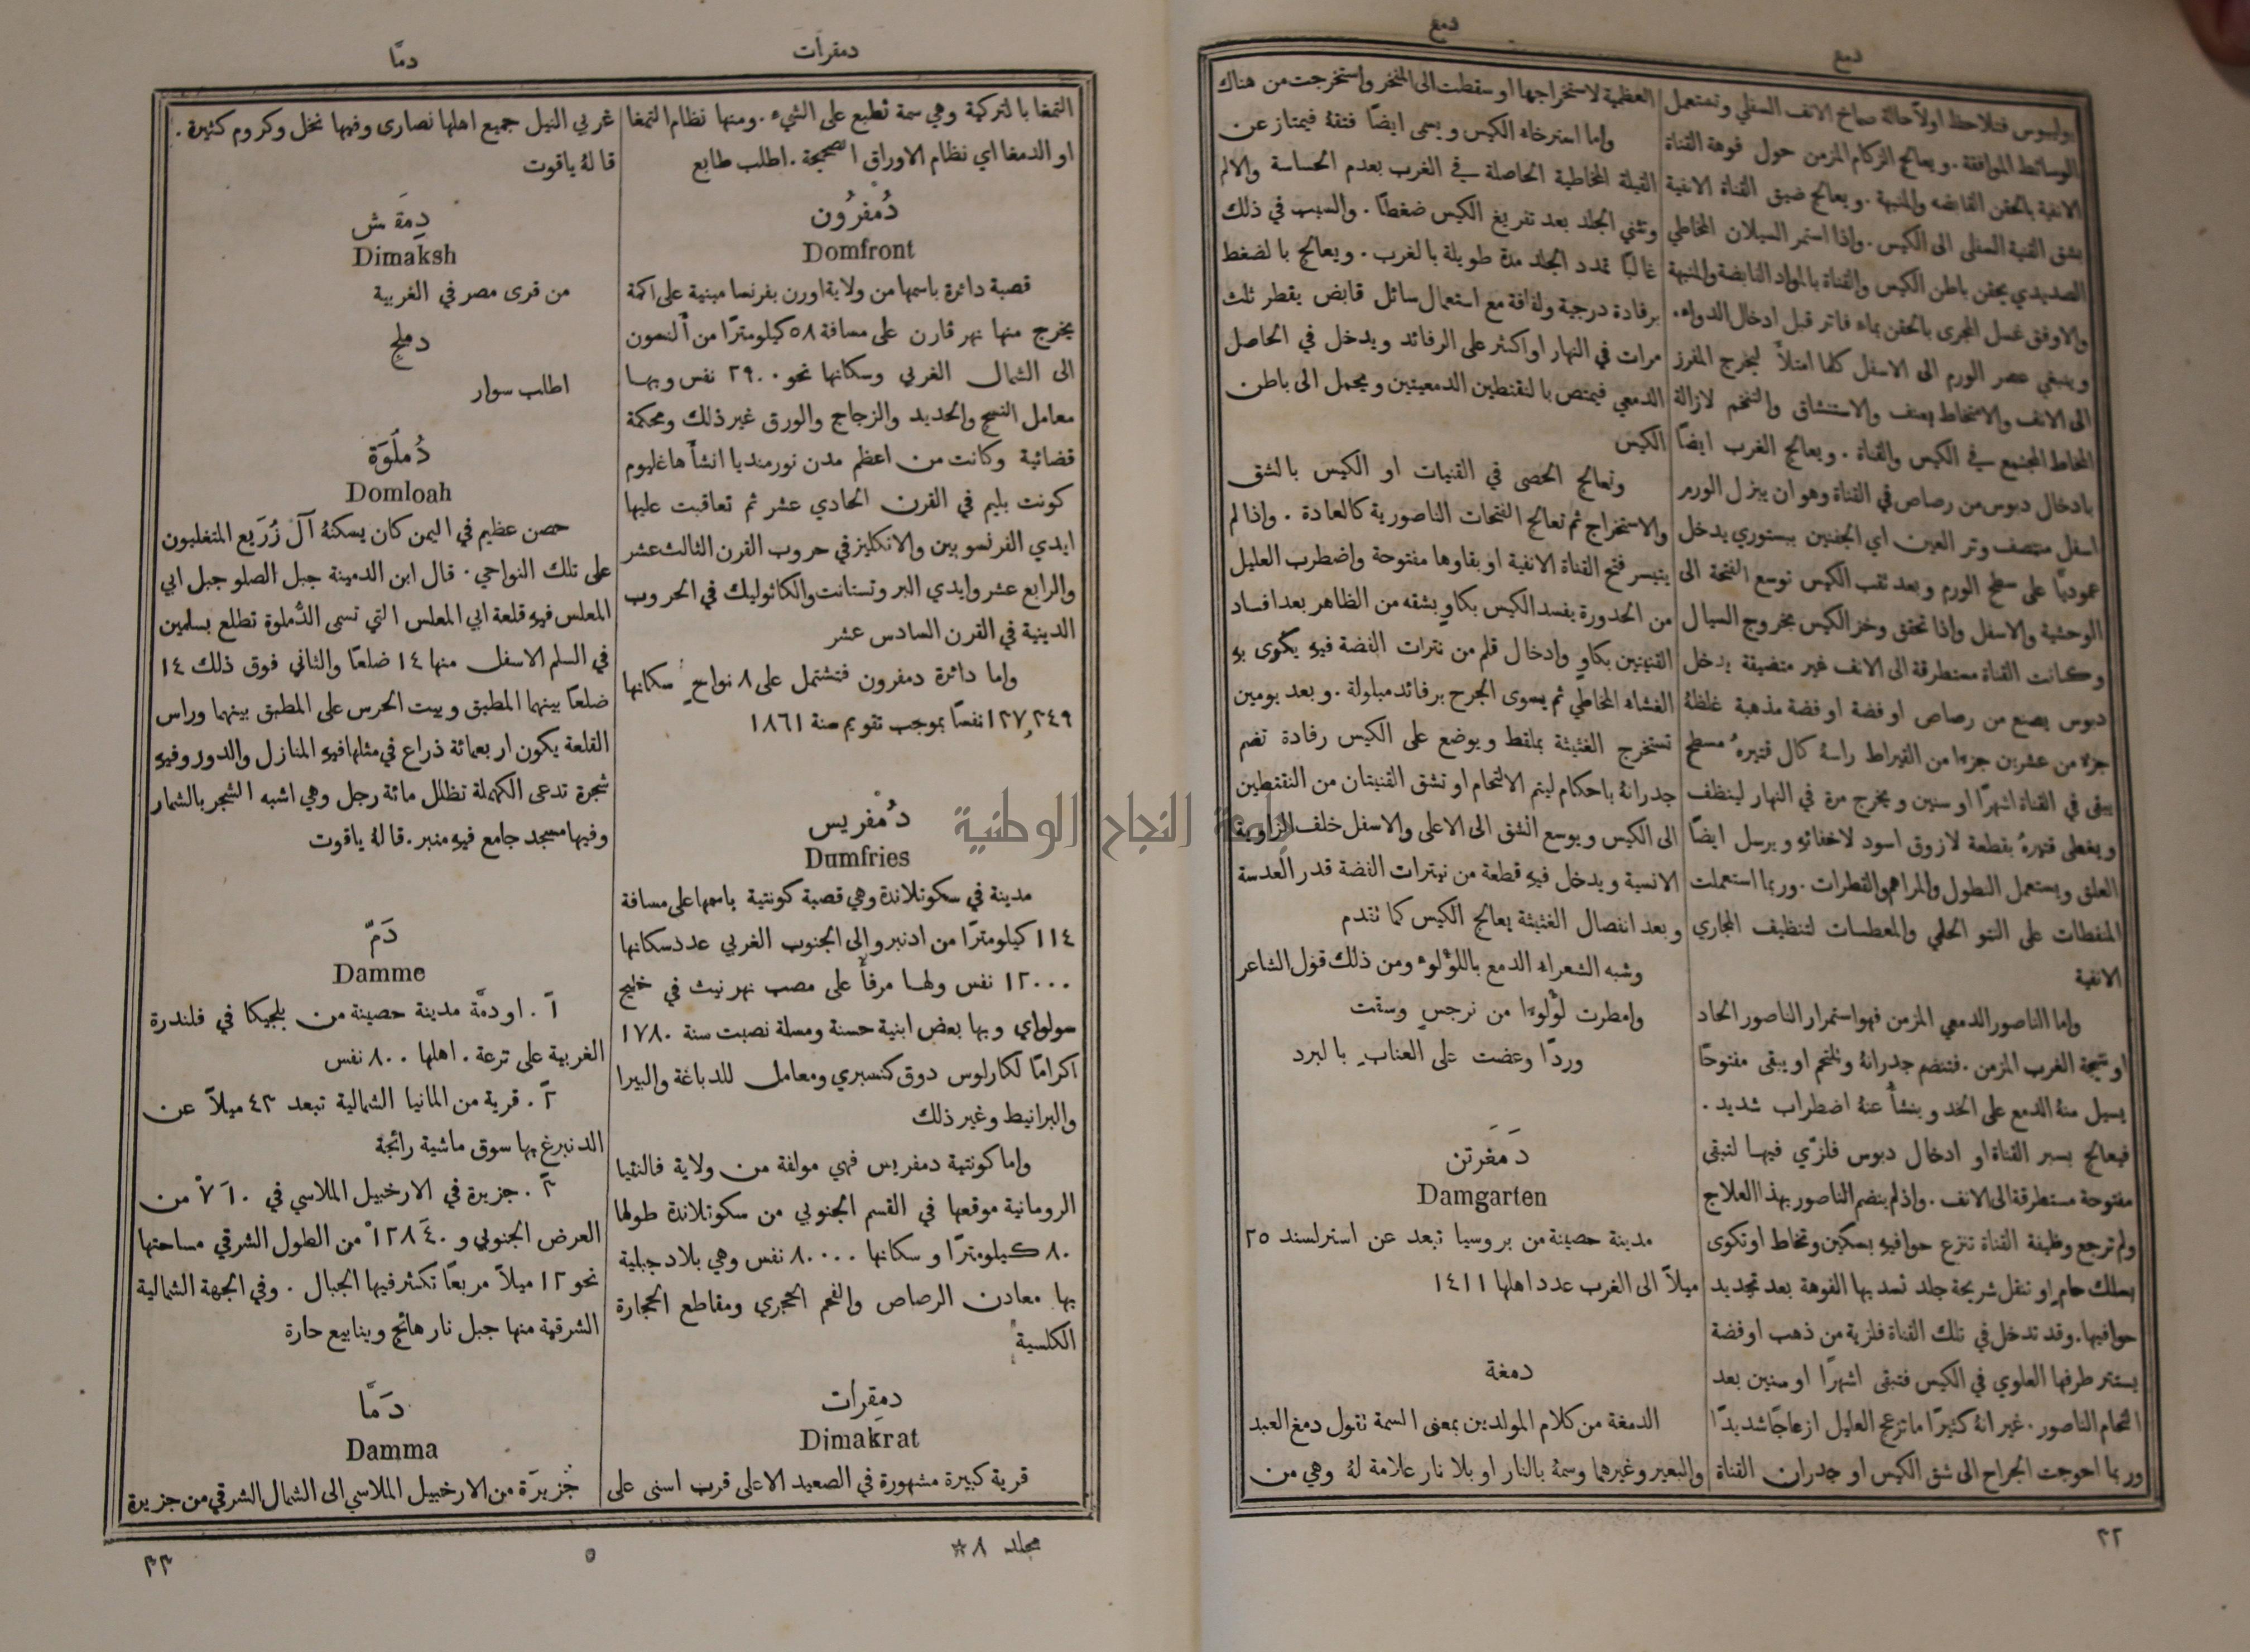 دمع
دمع
بوليبوس فتلاحظ اولاً حالة صماخ الانف السفلي وتستعمل
الوسائط الموافقة . ويعالج الزكام المزمن حول فوهة القناة
الانفية بالحقن القابضه والمنبهة . ويعالج ضيق القناة الانفية
بشق القنية السفلى الى الكيس . واذا استمر السيلان المخاطي
الصديدي يحقن باطن الكيس والقناة بالمواد القابضة والمنبهة
والاوفق غسل المجرى بالحقن بماء فاتر قبل ادخال الدواء .
وينبغي عصر الورم الى الاسفل كلما امتلأ ليخرج المفرز
الى الانف والامتخاط بعنف والاستنشاق والتنخم لازالة
المخاط المجتمع في الكيس والقناة . ويعالج الغرب ايضاً
بادخال دبوس من رصاص في القناة وهو ان يبزل الورم
اسفل منتصف وتر العين اي الجفنين ببستوري يدخل
عموديًا على سطح الورم وبعد ثقب الكيس توسع الفتحة الى
الوحشية والاسفل واذا تحقق وخز الكيس بخروج السيال
وكانت القناة مستطرقة الى الانف غير متضيقة يدخل
دبوس يصنع من رصاص او فضة او فضة مذهبة غلظهُ
جزء من عشرين جزءا من القيراط راسهُ كال قتيرهُ مسطح
يبقى في القناة اشهرًا او سنين ويخرج مرة في النهار لينظف
ويغطى قتيرهُ بقطعة لازوق اسود لاخفائهِ ويرسل ايضًا
العلق ويستعمل النطول والمراهم والقطرات . وربما استعملت
المنفطات على النتو الحلمي والمعطسات لتنظيف المجاري
الانفية
واما الناصور الدمعي المزمن فهو استمرار الناصور الحاد
او نتيجة الغرب المزمن . فتنضم جدرانهُ وتلتحم او يبقى مفتوحًا
يسيل منهُ الدمع على الخد وينشأ عنهُ اضطراب شديد .
فيعالج بسبر القناة او ادخال دبوس فلزّي فيها لتبقى
مفتوحة مستطرقة الى الانف . واذ لم ينضم الناصور بهذا العلاج
ولم ترجع وظيفة القناة تنزع حوافيهِ بسكين وتخاط او تكوى
بسلك حامٍ او تنقل شريحة جلد تسد بها الفوهة بعد تجديد
حوافيها . وقد تدخل في تلك القناة فلزية من ذهب او فضة
يستتر طرفها العلوي في الكيس فتبقى اشهرًا او سنين بعد
التحام الناصور . غير انهُ كثيرًا ما تزعج العليل ازعاجًا شديدًا
وربما احوجت الجراح الى شق الكيس او جدران القناة
العظمية لاستخراجها او سقطت الى المنخر واستخرجت من هناك
واما استرخاء الكيس ويسمى ايضًا فتقهُ فيمتاز عن
القيلة المخاطية الحاصلة في الغرب بعدم الحساسة والالم
وتثني الجلد بعد تفريغ الكيس ضغطًا . والسبب في ذلك
غالبًا تمدد الجلد مدة طويلة بالغرب . ويعالج بالضغط
برفادة درجية ولفافة مع استعمال سائل قابض يقطر ثلث
مرات في النهار او اكثر على الرفائد ويدخل في الحاصل
الدمعي فيمتص بالنقطتين الدمعيتين ويحمل الى باطن
الكيس
وتعالج الحصى في القنيات او الكيس بالشق
والاستخراج ثم تعالج الفتحات الناصورية كالعادة . واذا لم
يتيسر فتح القناة الانفية او بقاوها مفتوحة واضطرب العليل
من الحدورة يفسد الكيس بكاوٍ بشقه من الظاهر بعد افساد
القنيتين بكاوٍ وادخال قلم من نترات الفضة فيهِ يكوى بهِ
الغشاء المخاطي ثم يسوى الجرح برفائد مبلولة . وبعد يومين
تستخرج الغثيثة بملقط ويوضع على الكيس رفادة تضم
جدرانهُ باحكام ليتم الالتحام او تشق القنيتان من النقطتين
الى الكيس ويوسع الشق الى الاعلى والاسفل خلف الزاوية
الانسية ويدخل فيهِ قطعة من نيترات الفضة قدر العدسة
وبعد انفصال الغثيثة يعالج الكيس كما تقدم
وشبه الشعراء الدمع باللؤلوء ومن ذلك قول الشاعر
وامطرت لؤلوءًا من نرجسٍ وسقت
وردًا وعضت على العنابِ بالبرد
دَمَغَرتن
Damgarten
مدينة حصينة من بروسيا تبعد عن استرلسند ٢٥
ميلاً الى الغرب عدد اهلها ١٤١١
دمغة
الدمغة من كلام المولدين بمعنى السمة تقول دمغ العبد
والبعير وغيرهما وسمهُ بالنار او بلا نار علامة لهُ وهي من
٣٢
دمقرات
دمّا
التمغا بالتركية وهي سمة تطبع على الشيء . ومنها نظام التمغا
او الدمغا اي نظام الاوراق الصحيحة . اطلب طابع
دُمْفرُون
Domfront
قصبة دائرة باسمها من ولاية اورن بفرنسا مبنية على اكمة
يخرج منها نهر قارن على مسافة ٥٨ كيلومترًا من ألنسون
الى الشمال الغربي وسكانها نحو ٢٩٠٠ نفس وبها
معامل النسج والحديد والزجاج والورق غير ذلك ومحكمة
قضائية وكانت من اعظم مدن نورمنديا انشأها غليوم
كونت بليم في القرن الحادي عشر ثم تعاقبت عليها
ايدي الفرنسويين والانكليز في حروب القرن الثالث عشر
والرابع عشر وايدي البروتستانت والكاثوليك في الحروب
الدينية في القرن السادس عشر
واما دائرة دمفرون فتشتمل على ٨ نواحٍ سكانها
١٢٧,٢٤٩ نفسًا بموجب تقويم سنة ١٨٦١
دُمْفريس
Dumfries
مدينة في سكوتلاندة وهي قصبة كونتية باسمها على مسافة
١١٤ كيلومترًا من ادنبرو الى الجنوب الغربي عدد سكانها
١٢٠٠٠ نفس ولها مرفأ على مصب نهر نيث في خليج
سولواي وبها بعض ابنية حسنة ومسلة نصبت سنة ١٧٨٠
اكرامًا لكارلوس دوق كنسبري ومعامل للدباغة والبيرا
والبرانيط وغير ذلك
واما كونتية دمفريس فهي مولفة من ولاية فالنتيا
الرومانية موقعها في القسم الجنوبي من سكوتلاندة طولها
٨٠ كيلومترًا وسكانها ٨٠٠٠٠ نفس وهي بلاد جبلية
بها معادن الرصاص والفحم الحجري ومقاطع الحجارة
الكلسية
دمِقرات
Dimakrat
قرية كبيرة مشهورة في الصعيد الاعلى قرب اسنى على
غربي النيل جميع اهلها نصارى وفيها نخل وكروم كثيرة .
قالهُ ياقوت
دِمَقش
Dimaksh
من قرى مصر في الغربية
دملج
اطلب سوار
دُملُوَة
Domloah
حصن عظيم في اليمن كان يسكنهُ آل زُرَيع المتغلبون
على تلك النواحي . قال ابن الدمينة جبل الصلو جبل ابي
المعلس فيهِ قلعة ابي المعلس التي تسمى الدُّملوة تطلع بسلمين
في السلم الاسفل منها ١٤ ضلعًا والثاني فوق ذلك ١٤
ضلعًا بينهما المطبق وبيت الحرس على المطبق بينهما وراس
القلعة يكون اربعمائة ذراع في مثلها فيهِ المنازل والدور وفيهِ
شجرة تدعى الكهملة تظلل مائة رجل وهي اشبه الشجر بالشمار
وفيها مسجد جامع فيهِ منبر . قالهُ ياقوت
دَمّ
Damme
آ . او دمَّة مدينة حصينة من بلجيكا في فلندرة
الغربية على ترعة . اهلها ٨٠٠ نفس
٢ . قرية من المانيا الشمالية تبعد ٤٣ ميلاً عن
الدنبرغ بها سوق ماشية رائجة
٣ . جزيرة في الارخبيل الملاسي في ١٠َ ٧ْ من
العرض الجنوبي و ٤٠َ ١٢٨ْ من الطول الشرقي مساحتها
نحو ١٢ ميلاً مربعًا تكثر فيها الجبال . وفي الجهة الشمالية
الشرقية منها جبل نار هائج وينابيع حارة
دَمَّا
Damma
جزيرة من الارخبيل الملاسي الى الشمال الشرقي من جزيرة
مجلد ٨ ☆
٥
٣٣
جامعة النجاح الوطنية